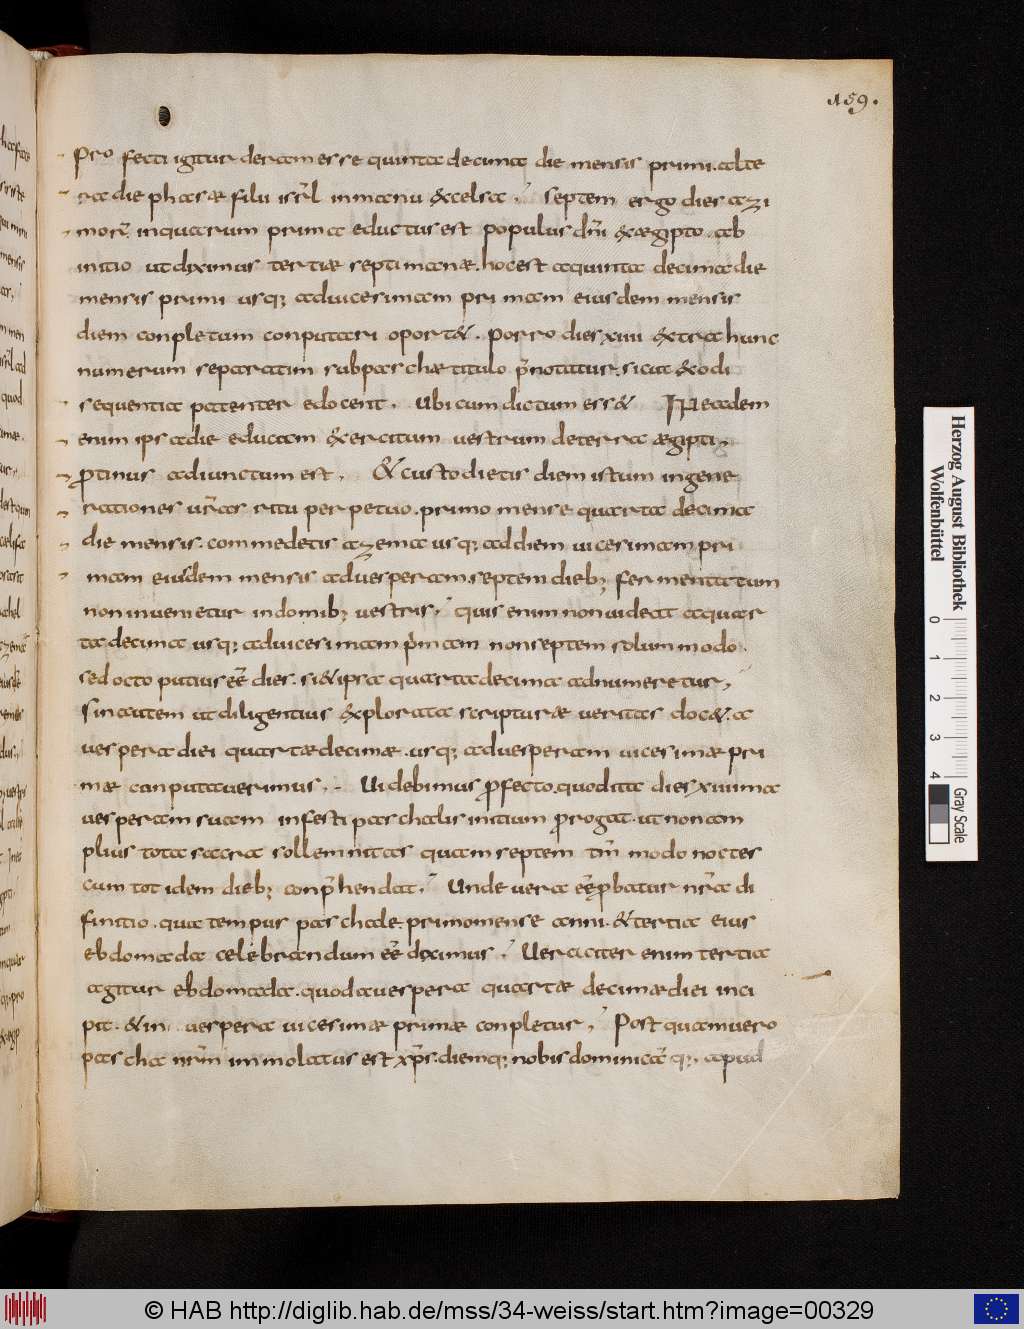 159.
Pro fecti igitur deramesse quinta decima die mensis primi. alte
ra die phasae filii isrl̄ in manu excelsa; septem ergo dies azi
morū inquarum prima eductus est populus dn̄i exaegipto. ab
initio ut diximus tertiae septimanae. hoc est aquinta decima die
mensis primi usq; aduicesimam primam eiusdem mensis
diem conpletam conputari oport&. Porro dies xiiii extra hunc
numerum separatim subpaschae titulo p̄notatur. sicut & odi
sequentia patenter edocent. Ubi cum dictum ess& IN eadem
enim ipsa die educam exercitum uestrum deterra aegipti;
protinus adiunctum est. & custodietis diem istum ingene
rationes ur̄as ritu perpetuo. primo mense quarta decima
die mensis. commedetis azema usq; addiem uicesimam pri
mam eiusdem mensis aduesperam. septem dieb; fermentatum
non inuenietur indomib; uestris; quis enim non uideat aquar
ta decima usq; aduicesimam p̄mam non septem solum modo.
sed octo potius eē dies. si & ipsa quarta decima adnumeretur;
Sin autem ut diligentius explorata scripturae ueritas doc&. a
uespera diei quartaedecimae. usq; aduesperam uicesimae pri
mae conputauerimus; Uidebimus profecto. quod ita dies xiiii ma
uesperam suam infesti paschalis initium prorogat. ut non am
plius tota sacra sollemnitas quam septem tm̄ modo noctes
cum totidem dieb; conp̄hendat; Unde uera eē probatur nr̄a di
finitio. qua tempus paschale. primo mense anni. & tertia eius
ebdomada celebrandum eē diximus; Ueraciter enim tertia
agitur ebdomada. quod auespera quartae decimae diei inci
pit. & in uespera uicesimae primae conpletur; Postquam uero
pascha nr̄m immolatus est xp̄s. diemq; nobis dominicā q; apud
Herzog August Bibliothek
Wolfenbüttel
0 1 2 3 4
Gray Scale
© HAB http://diglib.hab.de/mss/34-weiss/start.htm?image=00329